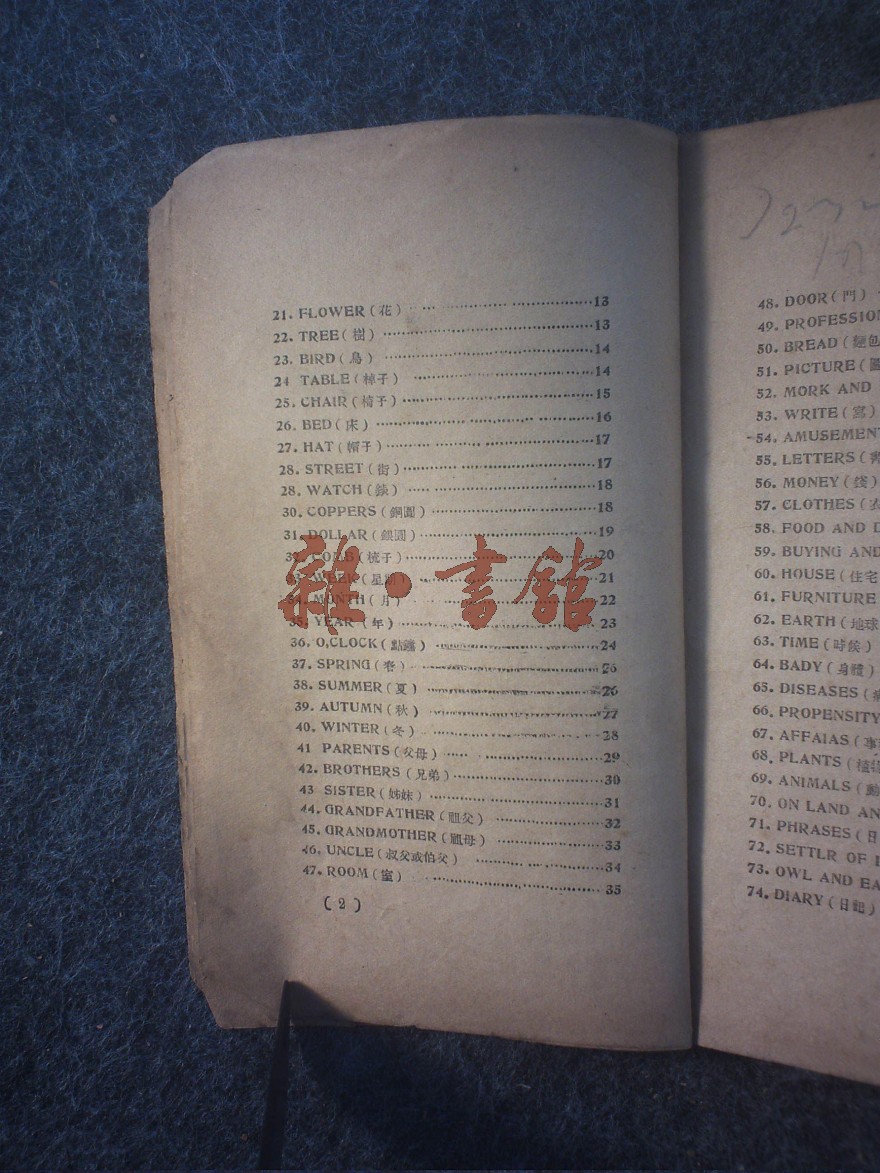 21. FLOWER（花）13
22. TREE（樹）13
23. BIRD（鳥）14
24 TABLE（棹子）14
25. CHAIR（椅子）15
26. BED（床）16
27. HAT（帽子）17
28. STREET（街）17
28. WATCH（錶）18
30. COPPERS（銅圓）18
31. DOLLAR（銀圓）19
32. COMB（梳子）20
33. WEEK（星期）21
34. MONTH（月）22
35. YEAR（年）23
36. O,CLOCK（點鐘）24
37. SPRING（春）25
38. SUMMER（夏）26
39. AUTUMN（秋）27
40. WINTER（冬）28
41 PARENTS（父母）29
42. BROTHERS（兄弟）30
43 SISTER（姊妹）31
44. GRANDFATHER（祖父）32
45. GRANDMOTHER（祖母）33
46. UNCLE（叔父或伯父）34
47. ROOM（室）35
（2）
雜·書館
48. DOOR（門）
49. PROFESSION
50. BREAD（麵包
51. PICTURE（圖
52. MORK AND
53. WRITE（寫）
54. AMUSEMENT
55. LETTERS（書
56. MONEY（錢）
57. CLOTHES（衣
58. FOOD AND D
59. BUYING AND
60. HOUSE（住宅
61. FURNITURE
62. EARTH（地球
63. TIME（時候）
64. BADY（身體）
65. DISEASES（病
66. PROPENSITY
67. AFFAIAS（事
68. PLANTS（植物
69. ANIMALS（動
70. ON LAND AN
71. PHRASES（日
72. SETTLR OF
73. OWL AND EA
74. DIARY（日記）